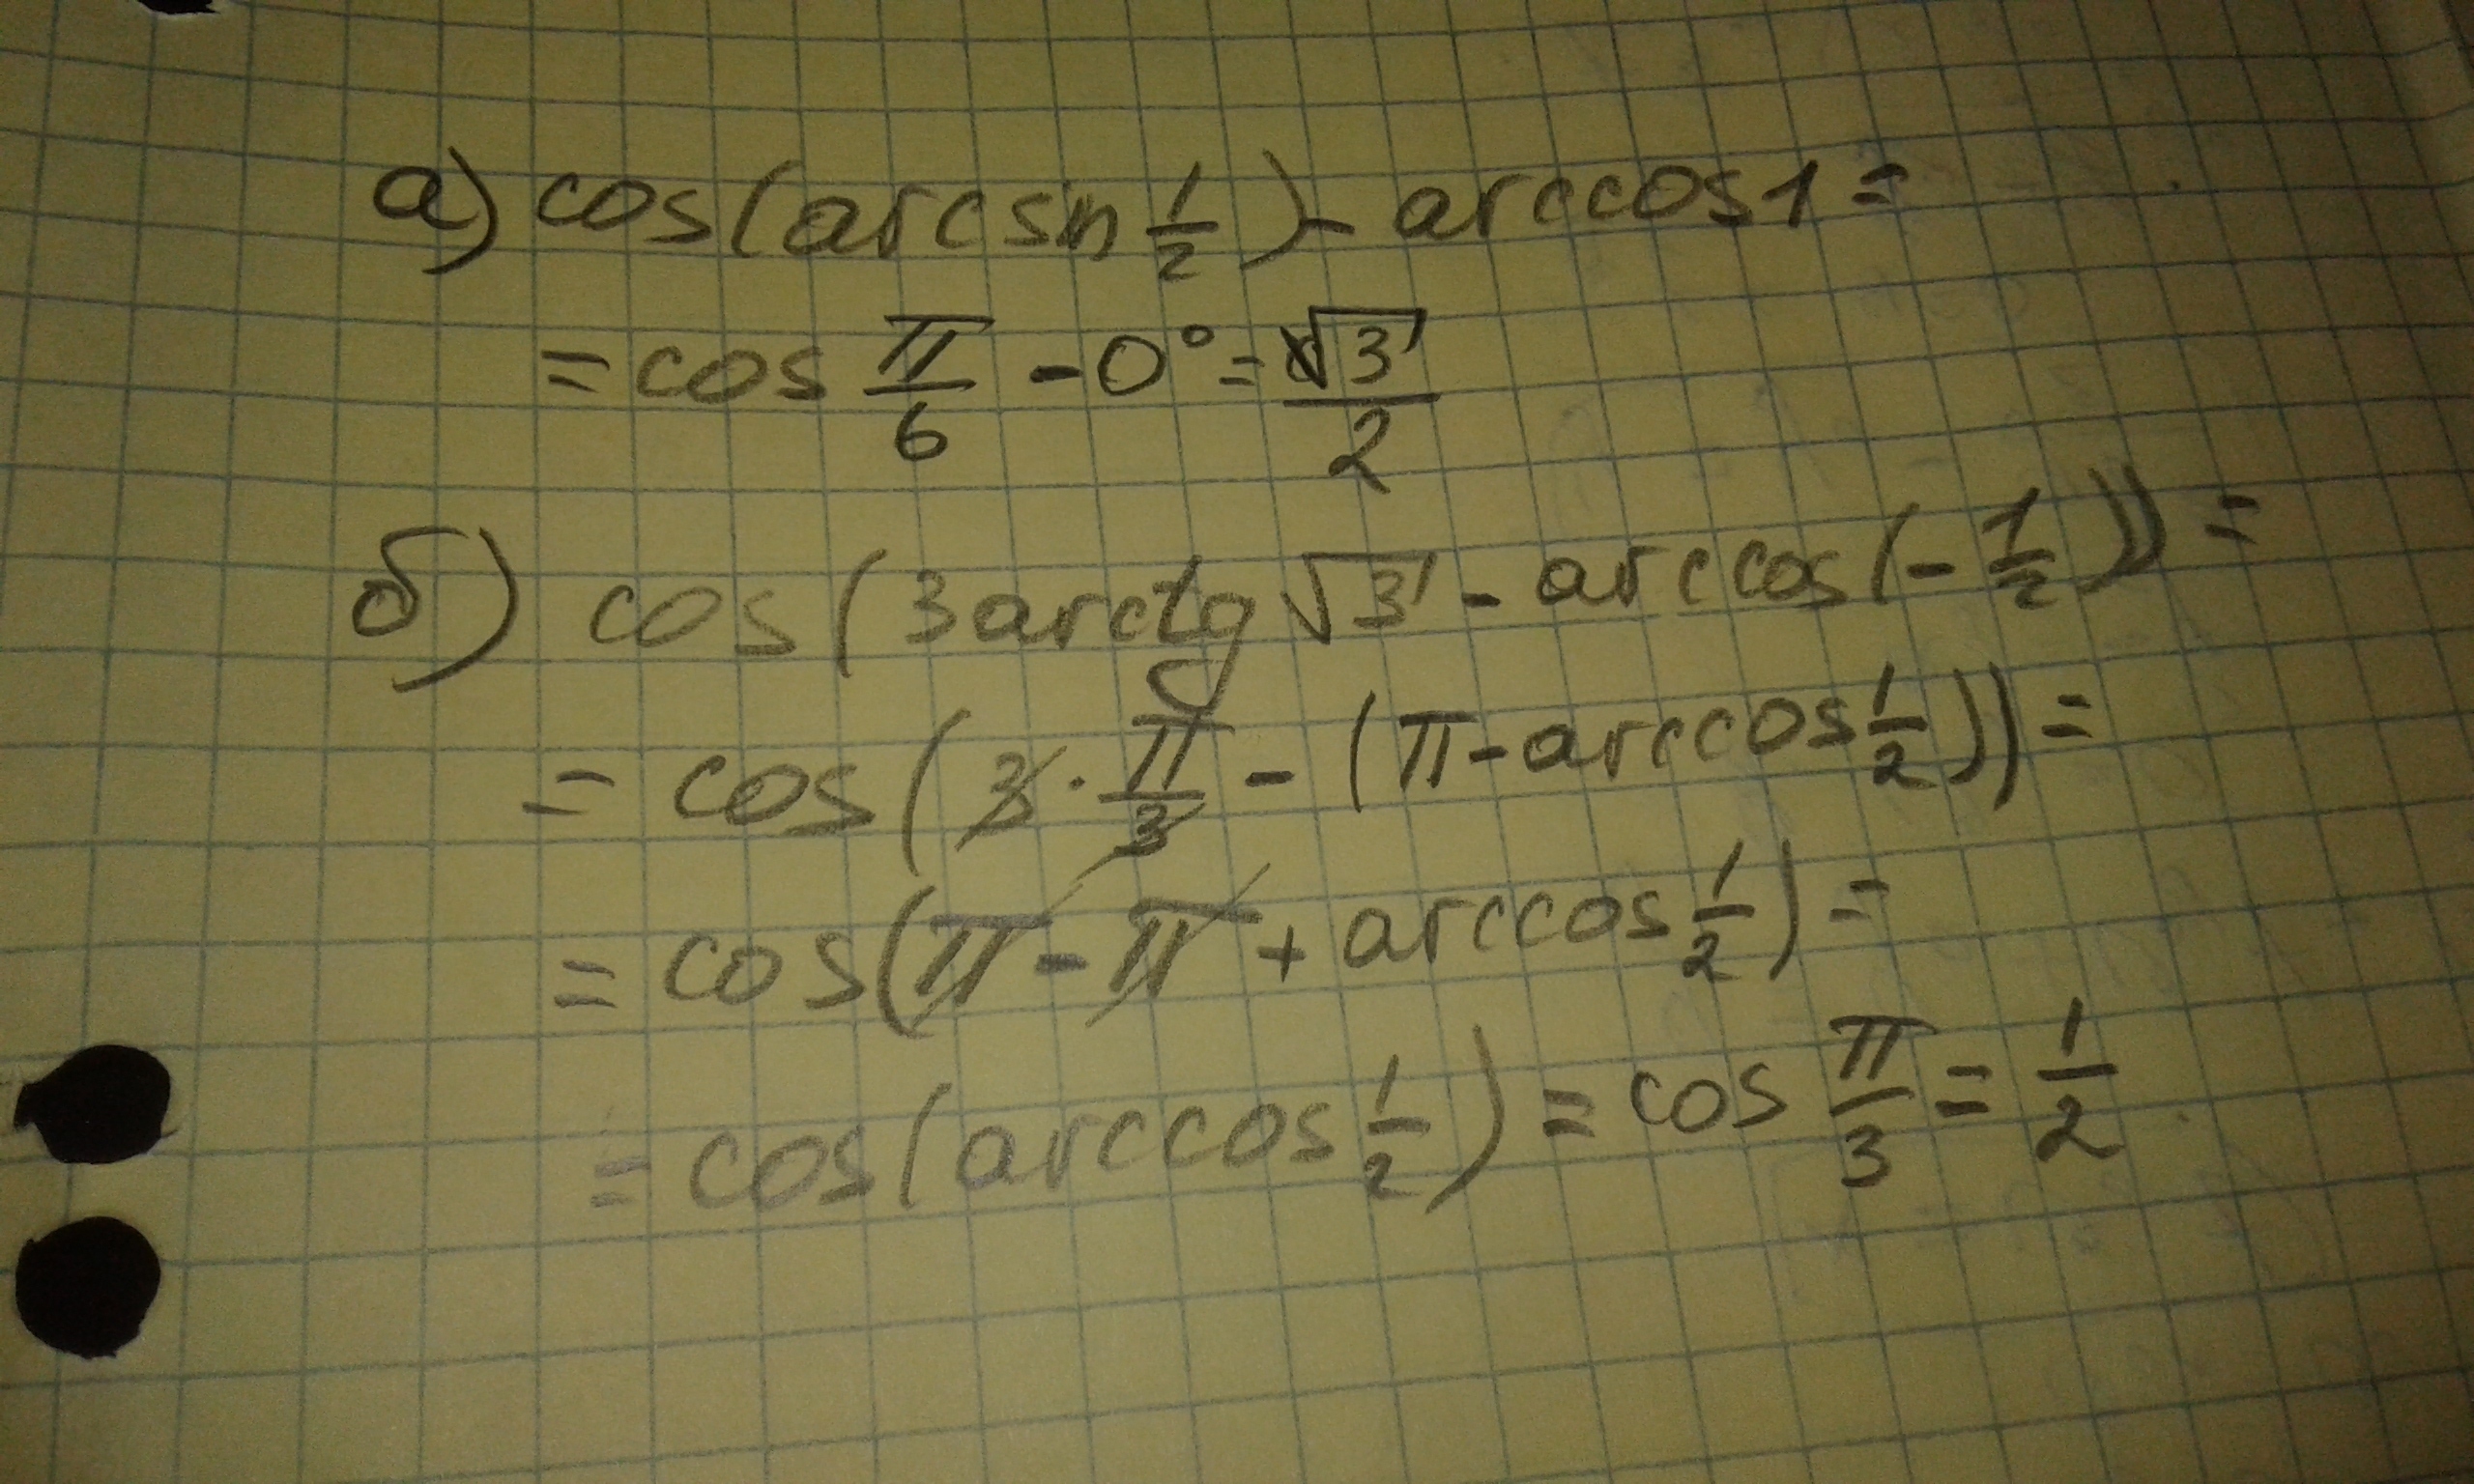 а) cos(arcsin 1/2) - arccos 1 =
= cos π/6 - 0° = √3/2
б) cos(3 arctg √3 - arccos(-1/2)) =
= cos(3 · π/3 - (π - arccos 1/2)) =
= cos(π - π + arccos 1/2) =
= cos(arccos 1/2) = cos π/3 = 1/2